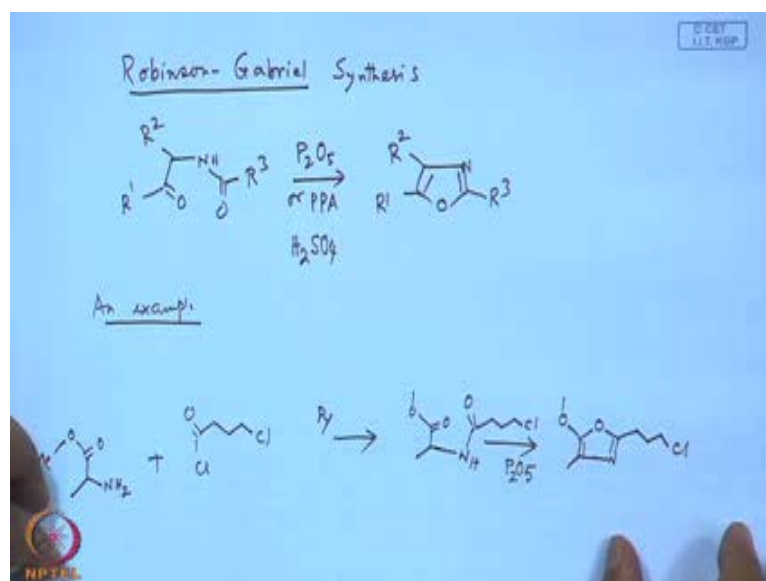 © CET
I.I.T. KGP
Robinson-Gabriel Synthesis
R² NH R³ R¹ O O
P₂O₅
or PPA
H₂SO₄
R² N R¹ O R³
An exampl.
O O NH₂
+
O Cl Cl
Py
O O O N H Cl
P₂O₅
O O N Cl
NPTEL